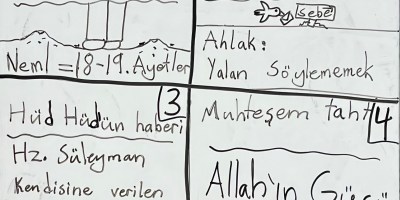 Neml = 18-19. Âyetler
Sebe
Ahlak:
Yalan Söylememek
3
Hüd Hüdün haberi
Hz. Süleyman
Kendisine verilen
4
Muhteşem taht
Allah'ın